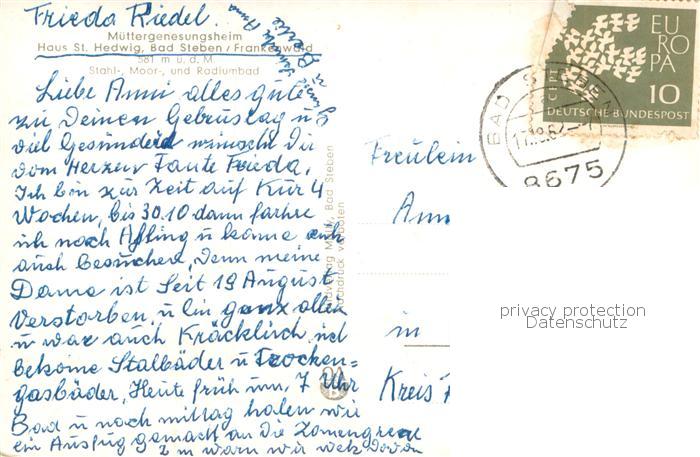 Frieda Riedel.
Müttergenesungsheim
Haus St. Hedwig, Bad Steben / Frankenwald
581 m ü. d. M.
Stahl-, Moor-, und Radiumbad
Liebe Anni alles gute
zu Deinen Gebrustag u
viel Gesundeid wünscht Dir
vom Herzen Tante Frieda,
Ich bin zur Zeit auf Kur 4
Wochen, bis 30.10 dann fahre
ich nach Affing u könne
auch Besuchen, Denn meine
Dama ist Seit 19 August
Verstorben, u bin ganz allein
u war auch Kräcklich, u
bekome Stalbäder u Trocken=
gasbäder, Heute früh um 7 Uhr
Bad u nach mittag haben wir
ein Ausfug gemacht an Die Zonengrenze
2 m warn wir weck Davon
Bad Steben
Nachdruck verboten
EUROPA
10
DEUTSCHE BUNDESPOST
BAD STEBEN
8675
Freulein
in
Kreis
privacy protection
Datenschutz